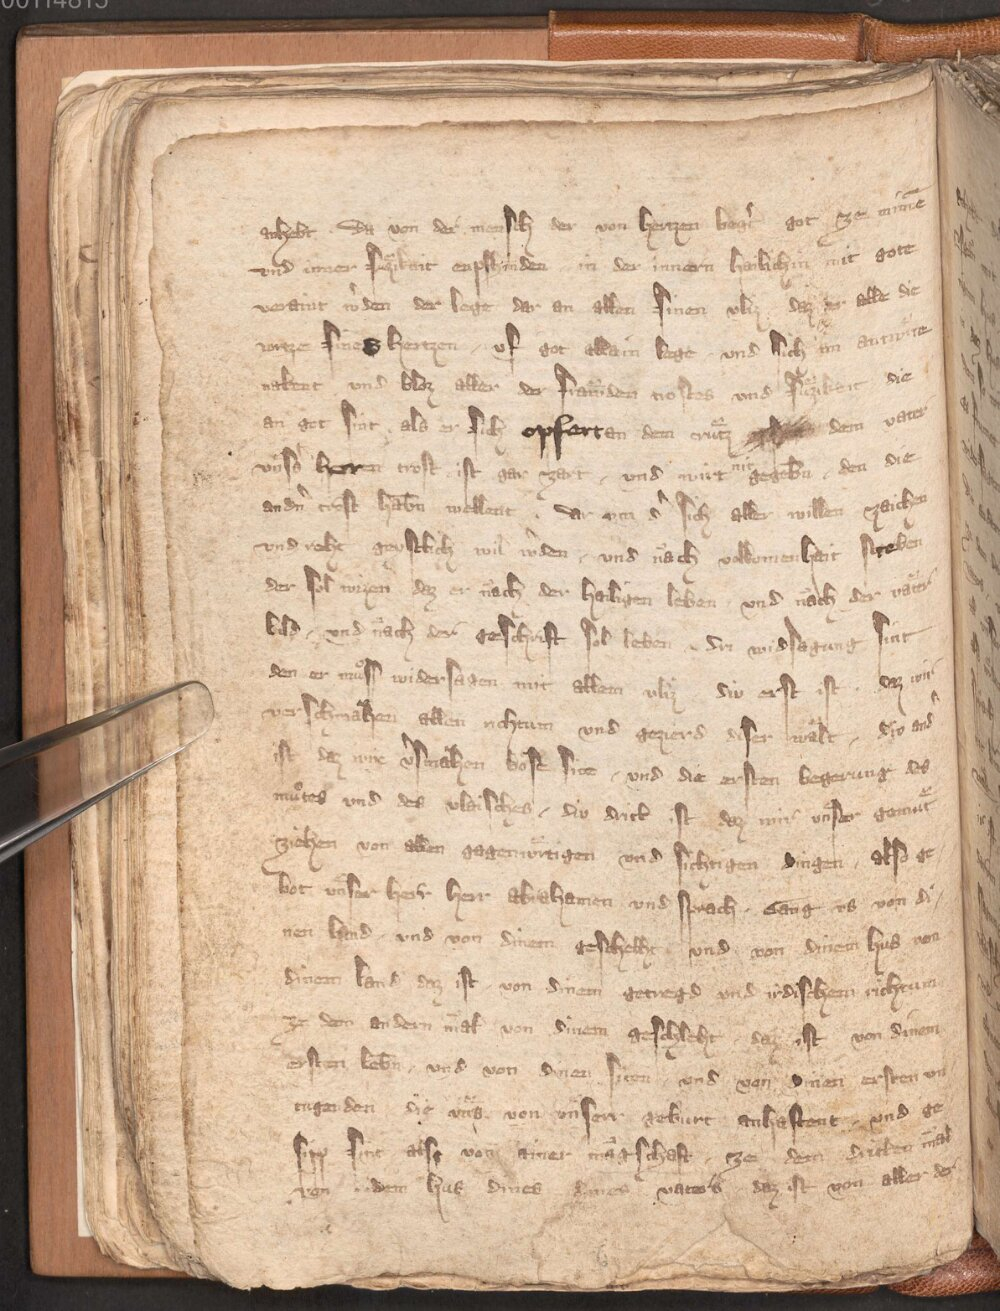 00114815
anhebt · Da von der mensch der von hertzen begert got ze minne
vnd inner sůzikait enpfinden in der innern hailichin mit gote
veraint werden der lege dar an allen sinen vliz daz er alle die
sines hertzen · vf got allain lege · vnd sich im antwurte
nakent vnd bloz aller der frawden trostes vnd sůzikait die
an got sint als er sich opfert an dem crutz dem vater
vnsers herren trost ist gar zart · vnd wirt nit gegeben · den die
andern trost haben wellent · dar vm der sich aller willen zaichen
vnd reht geystlich wil werden · vnd nach volkomenhait streben
der sol wizzen daz er nach der hailigen leben · vnd nach der väter
bild · vnd nach der geschrift sol leben · dri widsagung sint
den er muͦss widersagen mit allem vliz div erst ist · daz wir
verschmähen allen richtum vnd gezierd diser wält · div and
ist daz wir vsmähen böse site · vnd die ersten begerung des
muͦtes vnd des vlaisches · div drit ist daz wir vnser gemuͤt
ziehen von allen gagenwürtigen vnd sichtigen dingen · also ge
bot vnser herr herr abrahamen vnd sprach · Gang vs von di
nen land · vnd von dinem geschlecht vnd von dinem hus von
dinem land daz ist von dinem getregd vnd irdischem richtum
ze dem andern mal von dinem geschleht · daz ist von dinem
ersten leben · vnd von dinen siten · vnd von dinen ersten vn
tugenden die vns von vnserr geburt anhaftent · vnd ge
sipp sint also von ainer magschaft · ze dem dritten mal
von dem hus dines dines vaters daz ist von aller der